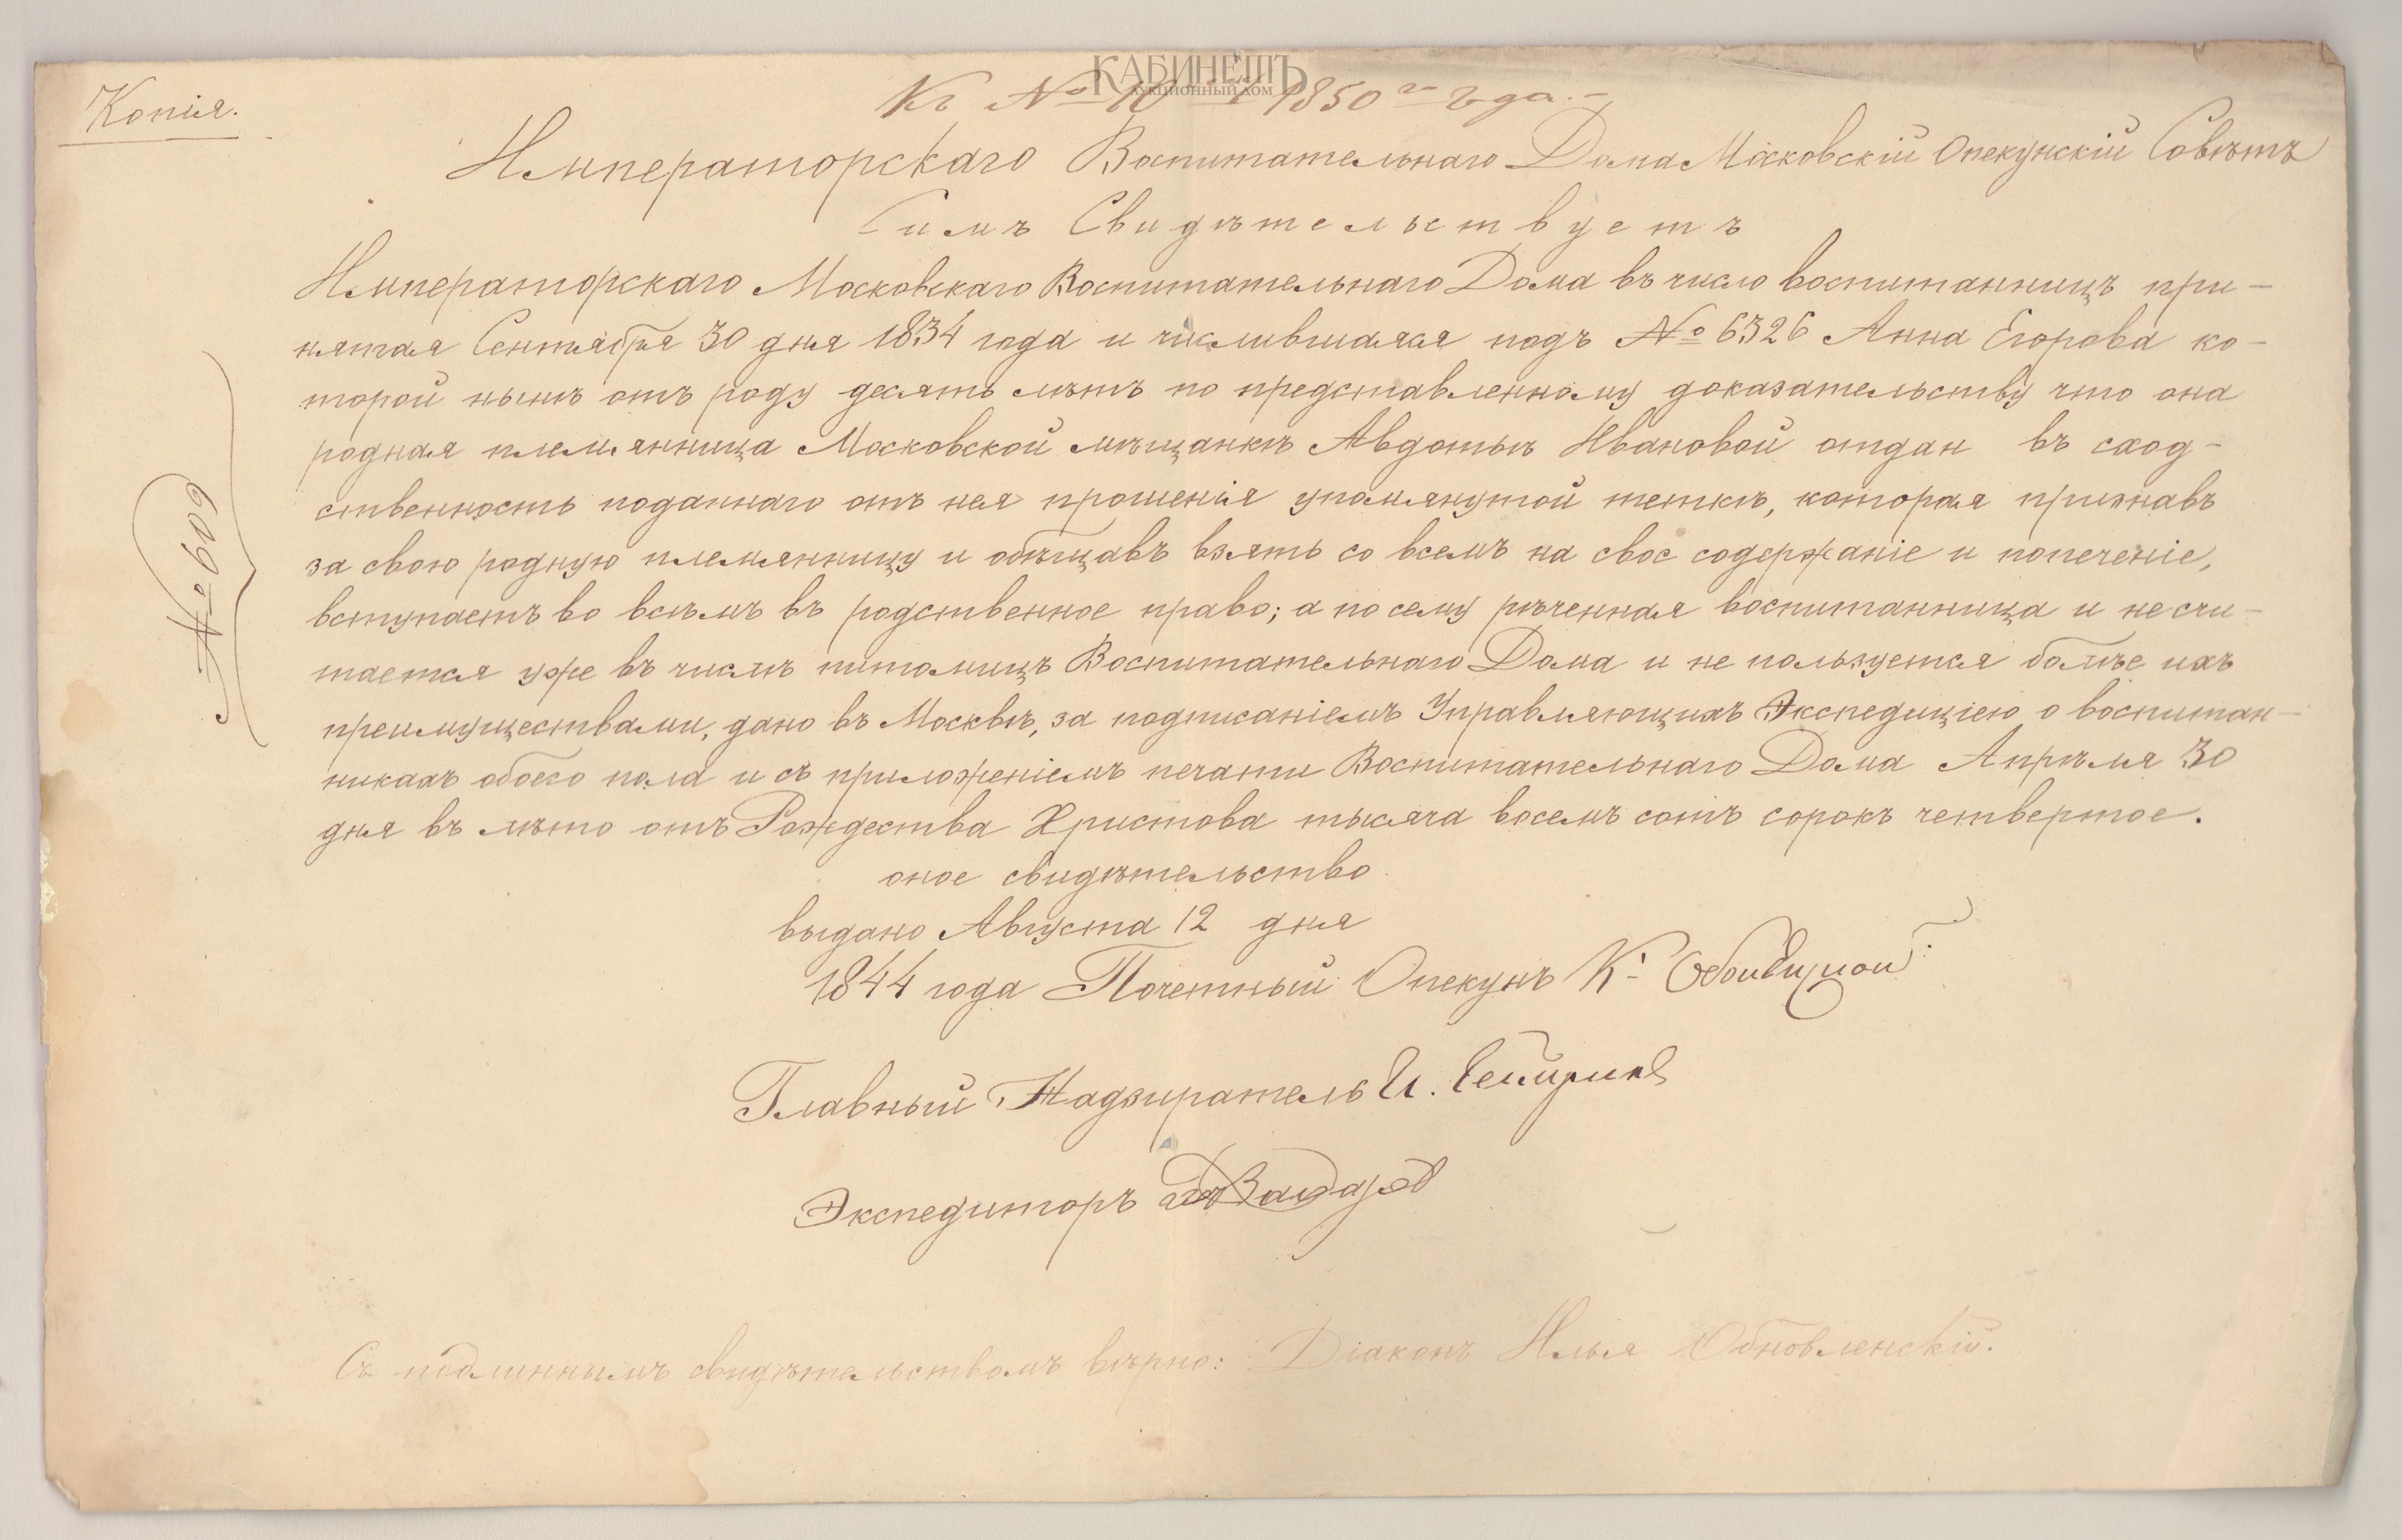 Копія.
КАБИНЕТЪ
АУКЦИОННЫЙ ДОМ
Къ № 10 1850 го года.
Императорскаго Воспитательнаго Дома Московскій Опекунскій Совѣтъ
Симъ Свидѣтельствуетъ
Императорскаго Московскаго Воспитательнаго Дома въ число воспитанницъ при-
нятая Сентября 30 дня 1834 года и числившаяся подъ № 6326 Анна Егорова ко-
торой нынѣ отъ роду десять лѣтъ по представленному доказательству что она
родная племянница Московской мѣщанкѣ Авдотьѣ Ивановой отдан въ сход-
ственность поданнаго отъ нея прошенія упомянутой теткѣ, которая признавъ
за свою родную племянницу и обѣщавъ взять со всемъ на свое содержаніе и попеченіе,
вступаетъ во всѣмъ въ родственное право; а по сему рѣченная воспитанница и не счи-
тается уже въ числѣ питомицъ Воспитательнаго Дома и не пользуется болѣе ихъ
преимуществами, дано въ Москвѣ, за подписаніемъ Управляющихъ Экспедиціею о воспитан-
никахъ обоего пола и съ приложеніемъ печати Воспитательнаго Дома Апрѣля 30
дня въ лѣто отъ Рождества Христова тысяча восемъ сотъ сорокъ четвертое.
№ 609
оное свидѣтельство
выдано Августа 12 дня
1844 года Почетный Опекунъ К.
Главный Надзиратель И.
Экспедиторъ
Съ подлиннымъ свидѣтельствомъ вѣрно: Діаконъ Илья Обновленскій.